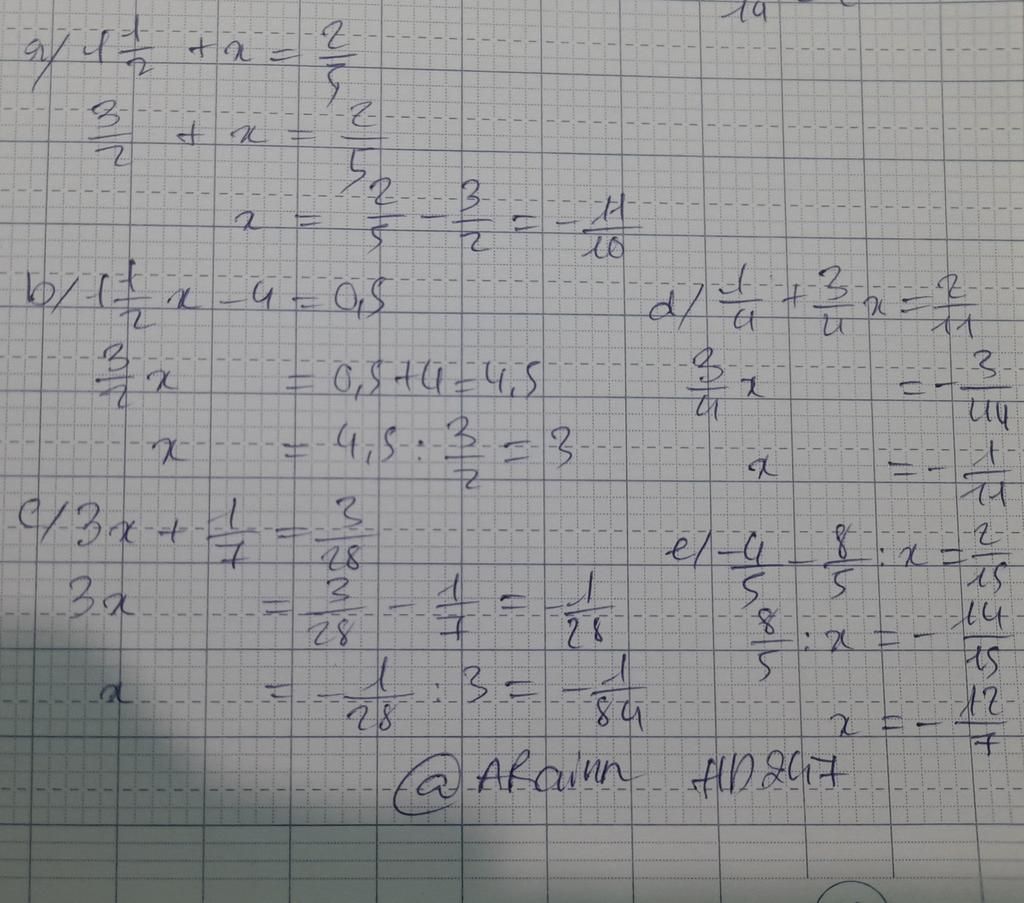 14
a/ 1 1/2 + x = 2/5
3/2 + x = 2/5
x = 2/5 - 3/2 = - 11/10
b/ 1 1/2 x - 4 = 0,5
3/2 x = 0,5 + 4 = 4,5
x = 4,5 : 3/2 = 3
c/ 3x + 1/7 = 3/28
3x = 3/28 - 1/7 = - 1/28
x = - 1/28 : 3 = - 1/84
d/ 1/4 + 3/4 x = 2/11
3/4 x = - 3/44
x = - 1/11
e/ -4/5 - 8/5 : x = 2/15
8/5 : x = - 14/15
x = - 12/7
@ ARainn HD247